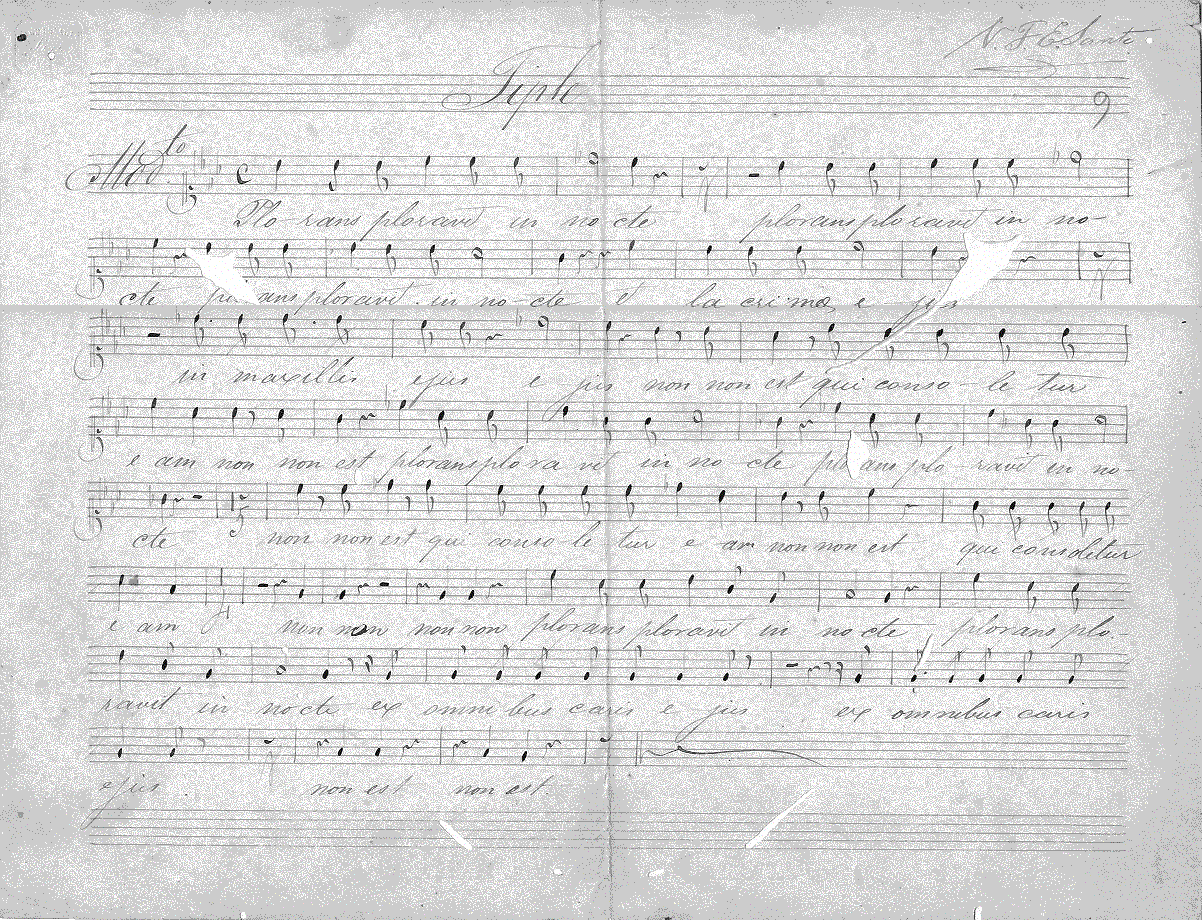 N. F. E. Santo
Tiple
9
Modto
Plo-rans ploravit in no cte plorans ploravit in no-
cte plorans ploravit in no-cte et la cri mæ e jus
in maxillis ejus e jus non non est qui conso-le tur
e am non non est plorans plo ra vit in no cte plorans plo ravit in no-
cte non non est qui conso-le tur e am non non est qui consoletur
e am non non non non plorans ploravit in no cte plorans plo-
ravit in no cte ex omni bus caris e jus ex omnibus caris
ejus non est non est.